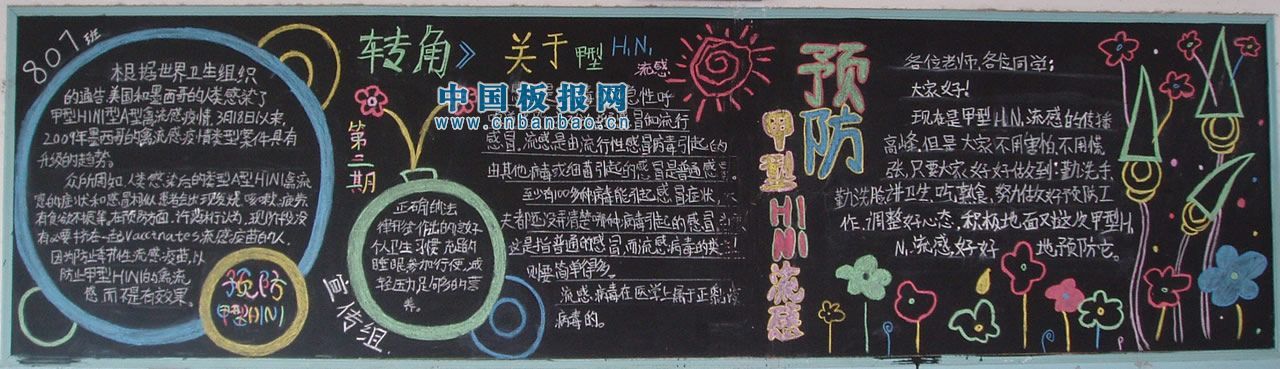 807班
根据世界卫生组织
的通告,美国和墨西哥的人类感染了
甲型H1N1型A型禽流感疫情,3月18日以来,
2009年墨西哥的禽流感疫情类型案件具有
升级的趋势。
众所周知,人类感染后的类型A型H1N1禽流
感的症状和感冒相似,患者出现发烧,咳嗽,疲劳,
有食欲不振等,在预防方面,
流感疫苗的人,
因为防止季节性流感疫苗,以
防止甲型H1N1的禽流
感,而不是有效果。
预防
甲型H1N1
转角》
第二期
正确的洗
个人卫生习惯,充足的
轻压力,足够的营
养。
宣传组
关于甲型H1N1
流感
中国板报网
www.cnbanbao.cn
急性呼
流行
感冒,流感是由流行性感冒病毒引起的
由其他病毒或细菌引起的感冒是普通感
至少有100多种病毒能引起感冒症状,
这是指普通的感冒,而流感病毒的类
则要简单得多。
流感病毒在医学上属于正黏液
病毒的。
预防
甲型H1N1流感
各位老师,各位同学:
大家好!
现在是甲型H1N1流感的传播
高峰,但是大家不用害怕,不用慌
张,只要大家好好做到:勤洗手,
勤洗脸,讲卫生,吃熟食,努力做好预防工
作,调整好心态,积极地面对这次甲型H1
N1流感,好好地预防它。